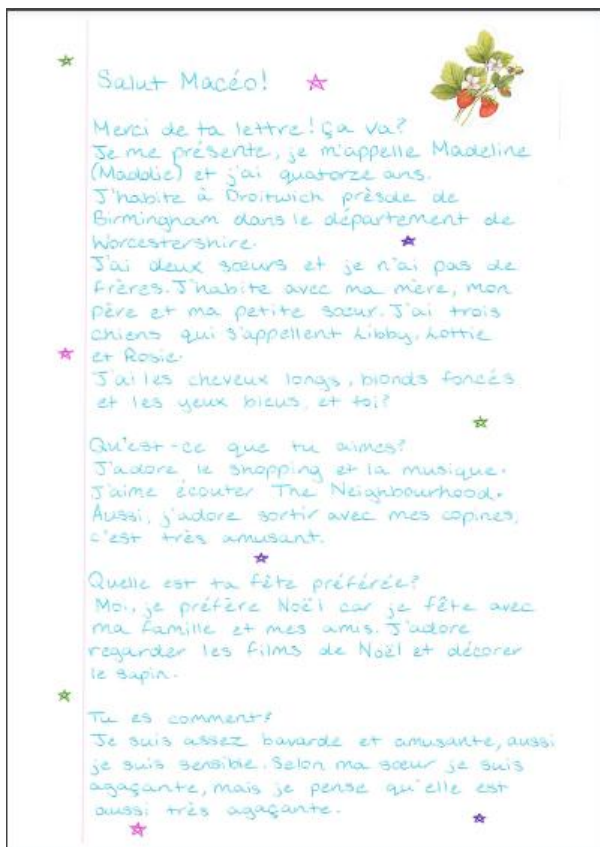 Salut Macéo!
Merci de ta lettre! Ça va?
Je me présente, je m'appelle Madeline
(Maddie) et j'ai quatorze ans.
J'habite à Droitwich près de
Birmingham dans le département de
Worcestershire.
J'ai deux sœurs et je n'ai pas de
frères. J'habite avec ma mère, mon
père et ma petite sœur. J'ai trois
chiens qui s'appellent Libby, Lottie
et Rosie.
J'ai les cheveux longs, blonds foncés
et les yeux bleus, et toi?
Qu'est-ce que tu aimes?
J'adore le shopping et la musique.
J'aime écouter The Neighbourhood.
Aussi, j'adore sortir avec mes copines,
c'est très amusant.
Quelle est ta fête préférée?
Moi, je préfère Noël car je fête avec
ma famille et mes amis. J'adore
regarder les films de Noël et décorer
le sapin.
Tu es comment?
Je suis assez bavarde et amusante, aussi
je suis sensible. Selon ma sœur je suis
agaçante, mais je pense qu'elle est
aussi très agaçante.